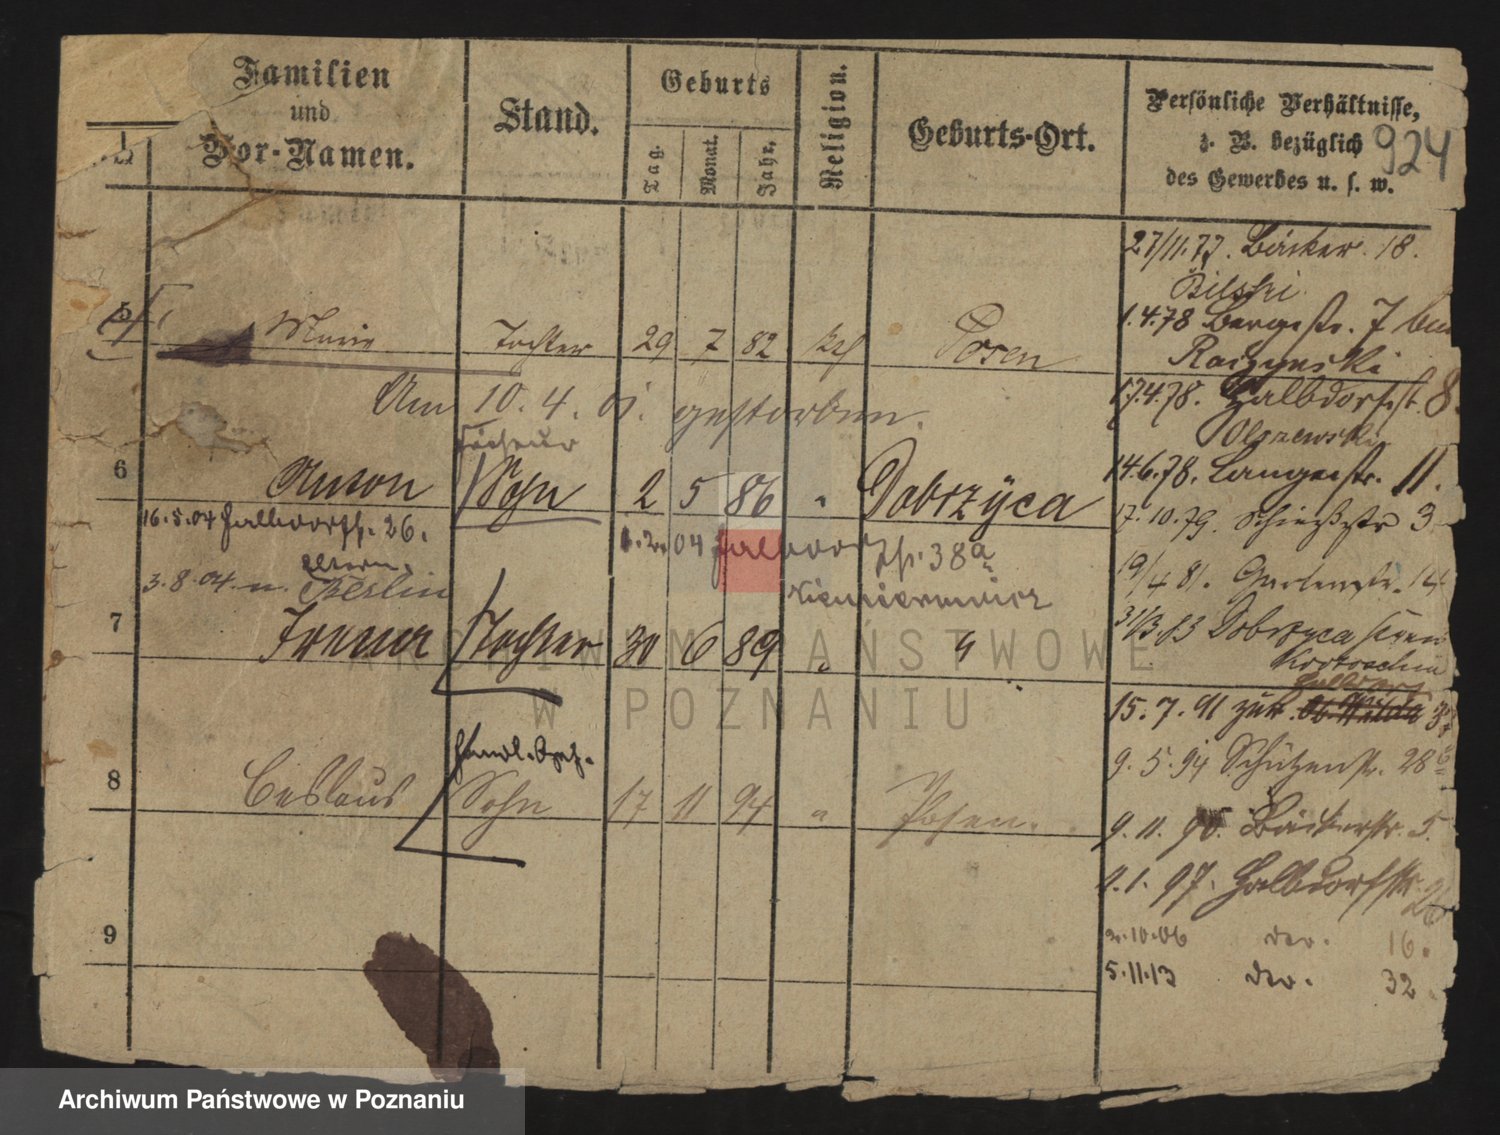 Familien
und
Vor-Namen.
Stand.
Geburts
Tag.
Monat.
Jahr.
Religion.
Geburts-Ort.
Persönliche Verhältnisse,
z. B. bezüglich
des Gewerbes u. s. w.
924
27/11.77. Bäcker. 18.
Bilski
5 Marie Tochter 29 7 82 kth Posen
1.4.78 Bergstr. 7 bei
Raczynski
Am 10.4.01. gestorben.
17.4.78. Halbdorfstr. 8.
Olszewski
Friseur
6 Anton Sohn 2 5 86 " Dobrzyca
14.6.78. Langestr. 11.
16.5.04 Halbdorfstr. 26.
17.10.79. Schießstr 3
04 Halbdorfstr. 38a
Eltern
3.8.04 n. Berlin
19/4 81. Gartenstr. 14
7 Irena Tochter 30 6 89 " "
31/3.83 Dobrzyca
Krotoschin
Halbdorf
15.7.91 zur. Ob. Wilda
Handl. Geh.
9.5.94 Schützenstr. 28
8 Ceslaus Sohn 17 11 94 " Posen.
9.11.95. Bäckerstr. 5.
1.1.97. Halbdorfstr. 26
9
10.06 der. 16.
5.11.13 der. 32.
ARCHIWUM PAŃSTWOWE
W POZNANIU
Archiwum Państwowe w Poznaniu